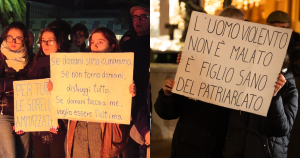 PER TUTTE
LE SORELLE
AMMAZZATE
Se domani sono cummama
Se non torno domani,
distruggi tutto.
Se domani tocca a me,
voglio essere l'ultima
L'UOMO VIOLENTO
NON È MALATO
È FIGLIO SANO
DEL PATRIARCATO